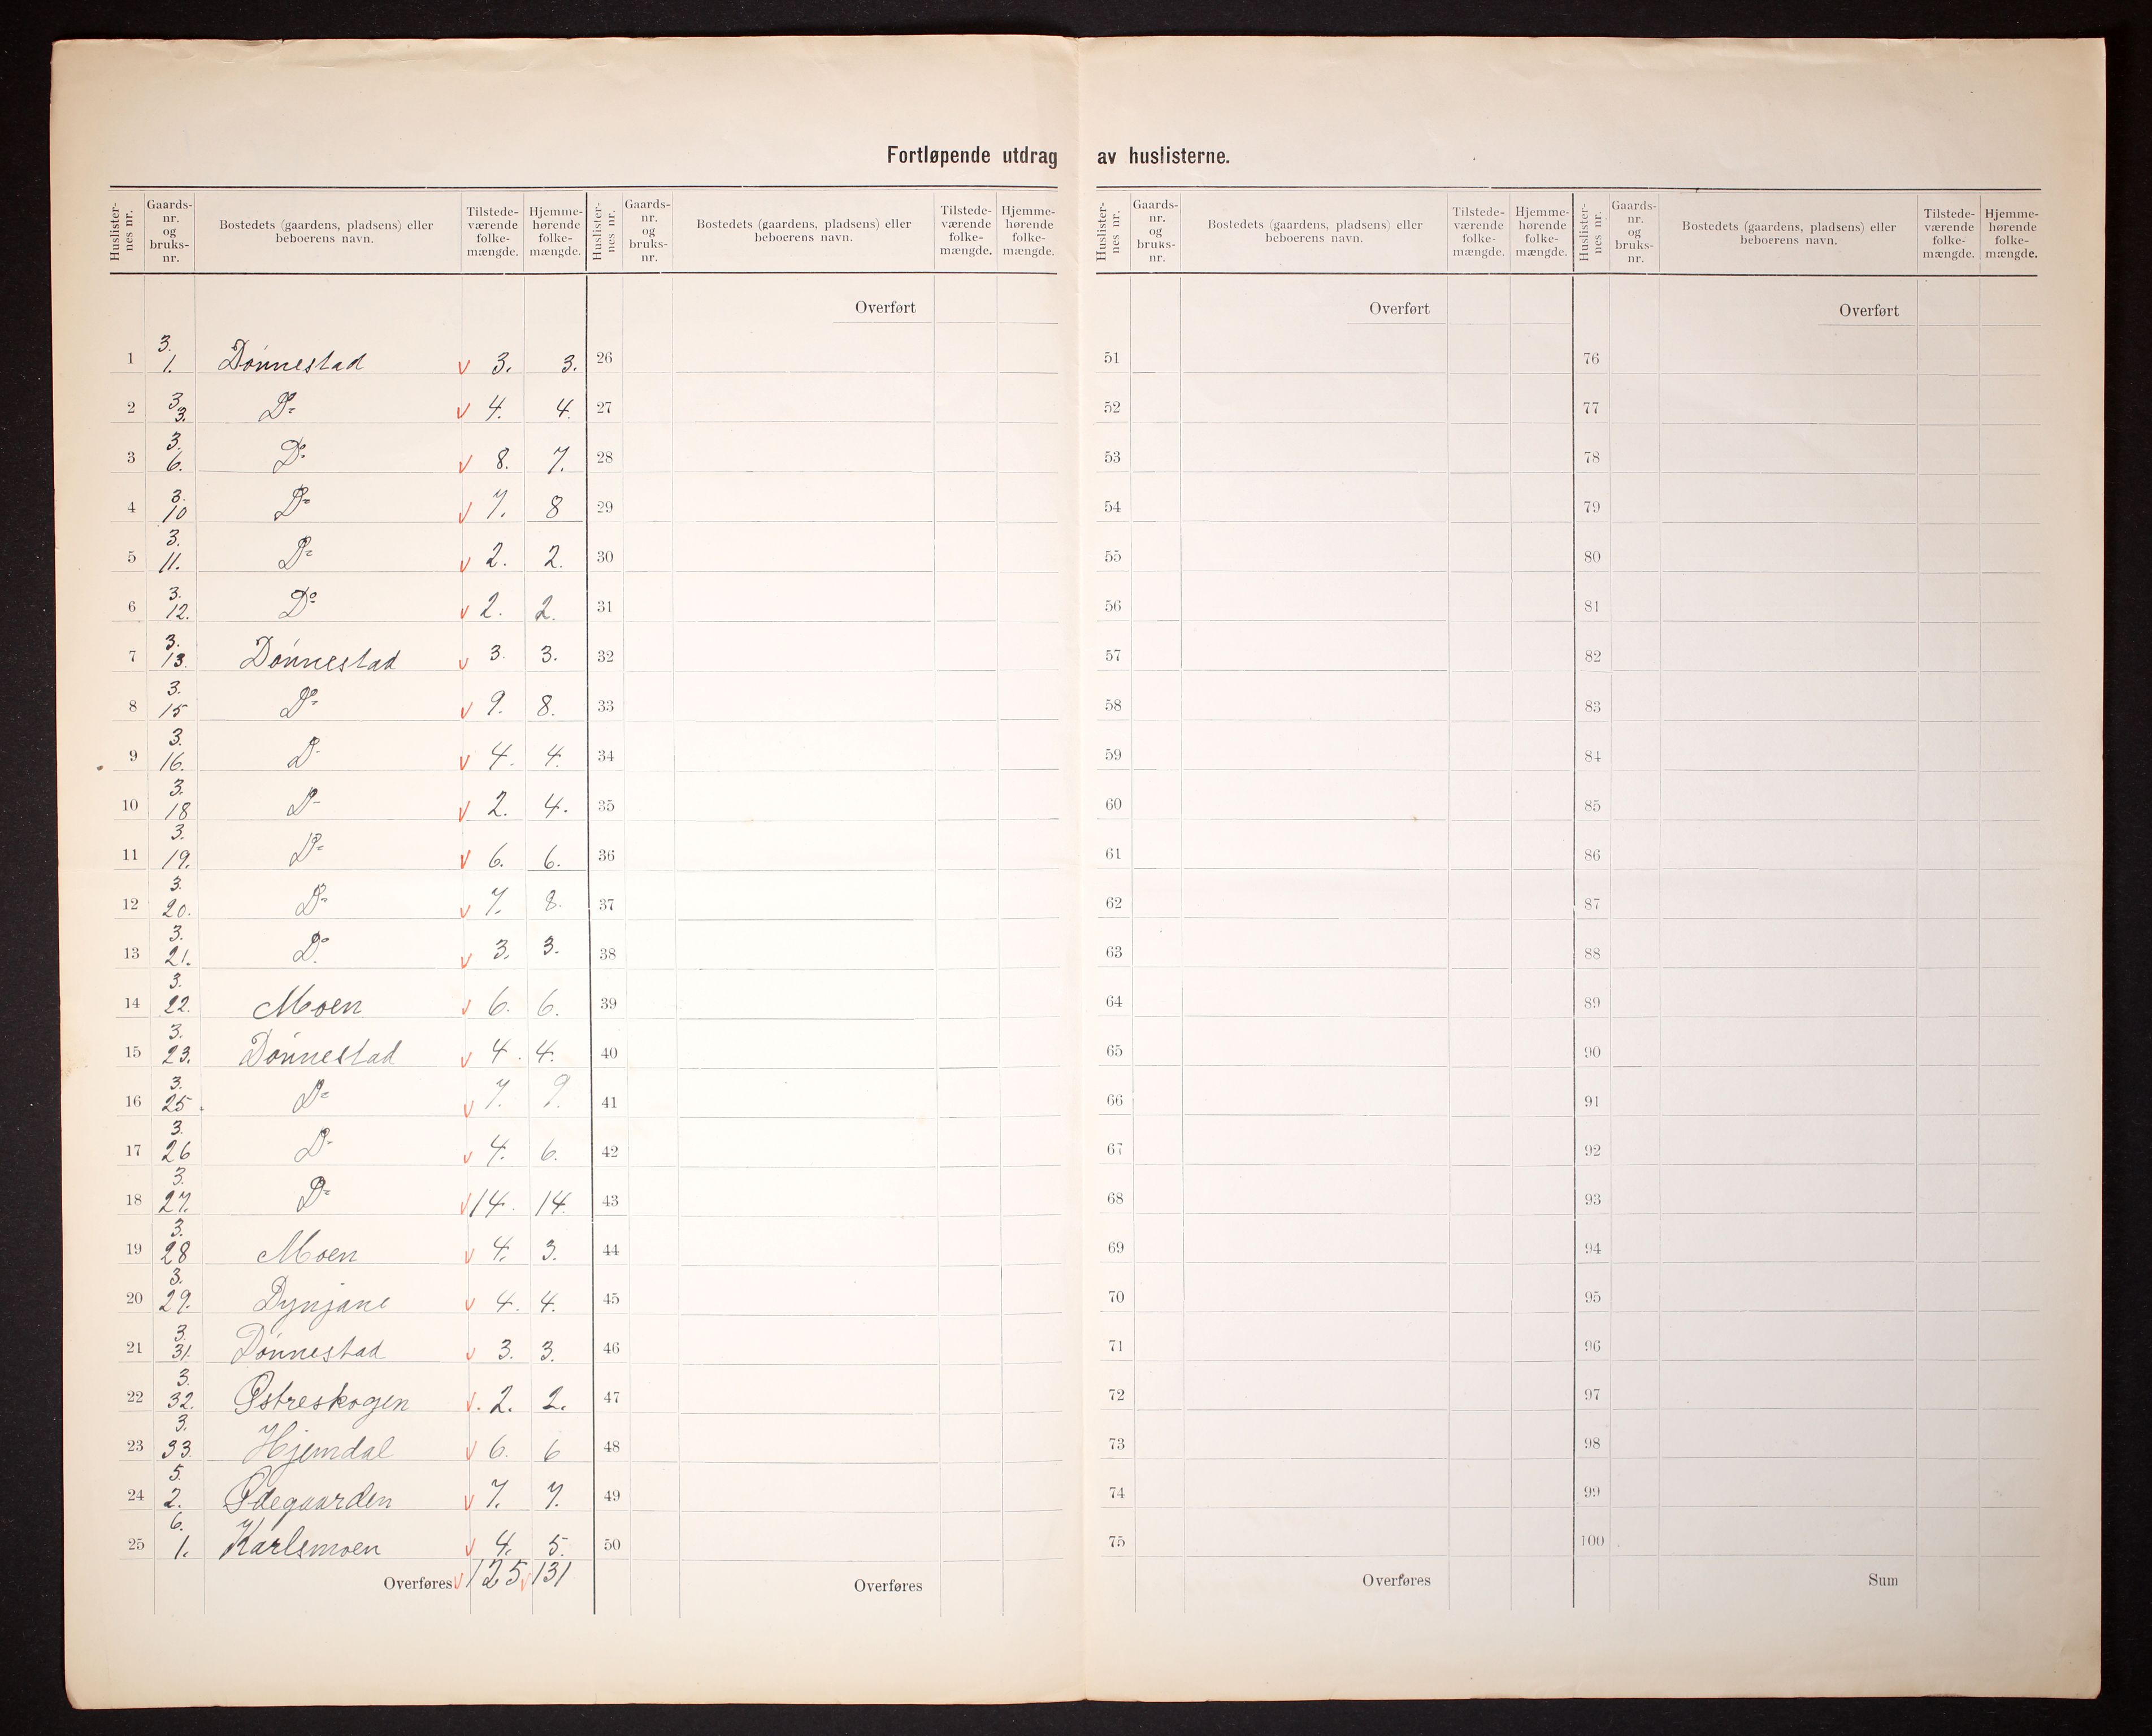 Fortløpende utdrag av huslisterne.
Huslister-nes nr. Gaards-nr. og bruks-nr. Bostedets (gaardens, pladsens) eller beboerens navn. Tilstede-værende folke-mængde. Hjemme-hørende folke-mængde.
Huslister-nes nr. Gaards-nr. og bruks-nr. Bostedets (gaardens, pladsens) eller beboerens navn. Tilstede-værende folke-mængde. Hjemme-hørende folke-mængde.
Huslister-nes nr. Gaards-nr. og bruks-nr. Bostedets (gaardens, pladsens) eller beboerens navn. Tilstede-værende folke-mængde. Hjemme-hørende folke-mængde.
Huslister-nes nr. Gaards-nr. og bruks-nr. Bostedets (gaardens, pladsens) eller beboerens navn. Tilstede-værende folke-mængde. Hjemme-hørende folke-mængde.
Overført Overført Overført
1 3. 1. Dønnestad v 3. 3. 26 51 76
2 3 3. Do v 4. 4. 27 52 77
3 3. 6. Do v 8. 7. 28 53 78
4 3. 10 Do v 7. 8 29 54 79
5 3. 11. Do v 2. 2. 30 55 80
6 3. 12. Do v 2. 2. 31 56 81
7 3. 13. Dønnestad v 3. 3. 32 57 82
8 3. 15 Do v 9. 8. 33 58 83
9 3. 16. Do v 4. 4. 34 59 84
10 3. 18 Do v 2. 4. 35 60 85
11 3. 19. Do v 6. 6. 36 61 86
12 3. 20. Do v 7. 8. 37 62 87
13 3. 21. Do v 3. 3. 38 63 88
14 3. 22. Moen v 6. 6. 39 64 89
15 3. 23. Dønnestad v 4. 4. 40 65 90
16 3. 25. Do v 7. 9. 41 66 91
17 3. 26 Do v 4. 6. 42 67 92
18 3. 27. Do v 14. 14. 43 68 93
19 3. 28 Moen v 4. 3. 44 69 94
20 3. 29. Dynjane v 4. 4. 45 70 95
21 3. 31. Dønnestad v 3. 3. 46 71 96
22 3. 32. Østreskogen v. 2. 2. 47 72 97
23 3. 33. Hjemdal v 6. 6 48 73 98
24 5. 2. Ødegaarden v 7. 7. 49 74 99
25 6. 1. Karlsmoen v 4. 5. 50 75 100
Overføres v 125 v 131 Overføres Overføres Sum